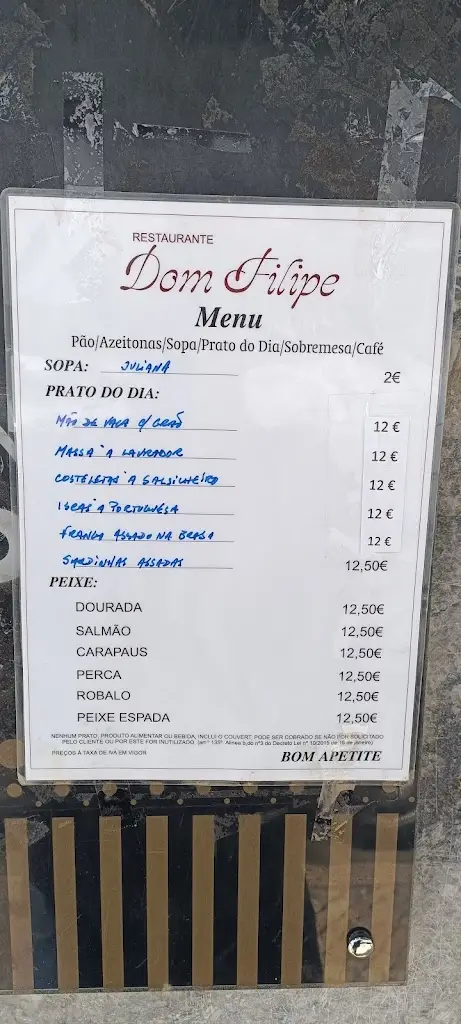 RESTAURANTE
Dom Filipe
Menu
Pão/Azeitonas/Sopa/Prato do Dia/Sobremesa/Café
SOPA: JULIANA 2€
PRATO DO DIA:
MÃO DE VACA C/ GRÃO 12 €
MASSA À LAVRADOR 12 €
COSTELETAS À SALSICHEIRO 12 €
ISCAS À PORTUGUESA 12 €
FRANGO ASSADO NA BRASA 12 €
SARDINHAS ASSADAS 12,50€
PEIXE:
DOURADA 12,50€
SALMÃO 12,50€
CARAPAUS 12,50€
PERCA 12,50€
ROBALO 12,50€
PEIXE ESPADA 12,50€
NENHUM PRATO, PRODUTO ALIMENTAR OU BEBIDA, INCLUI O COUVERT, PODE SER COBRADO SE NÃO FOR SOLICITADO
PELO CLIENTE OU POR ESTE FOR INUTILIZADO. (art.º 135º Alínea b) do nº3 do Decreto Lei nº 10/2015 de 16 de janeiro)
PREÇOS À TAXA DE IVA EM VIGOR
BOM APETITE